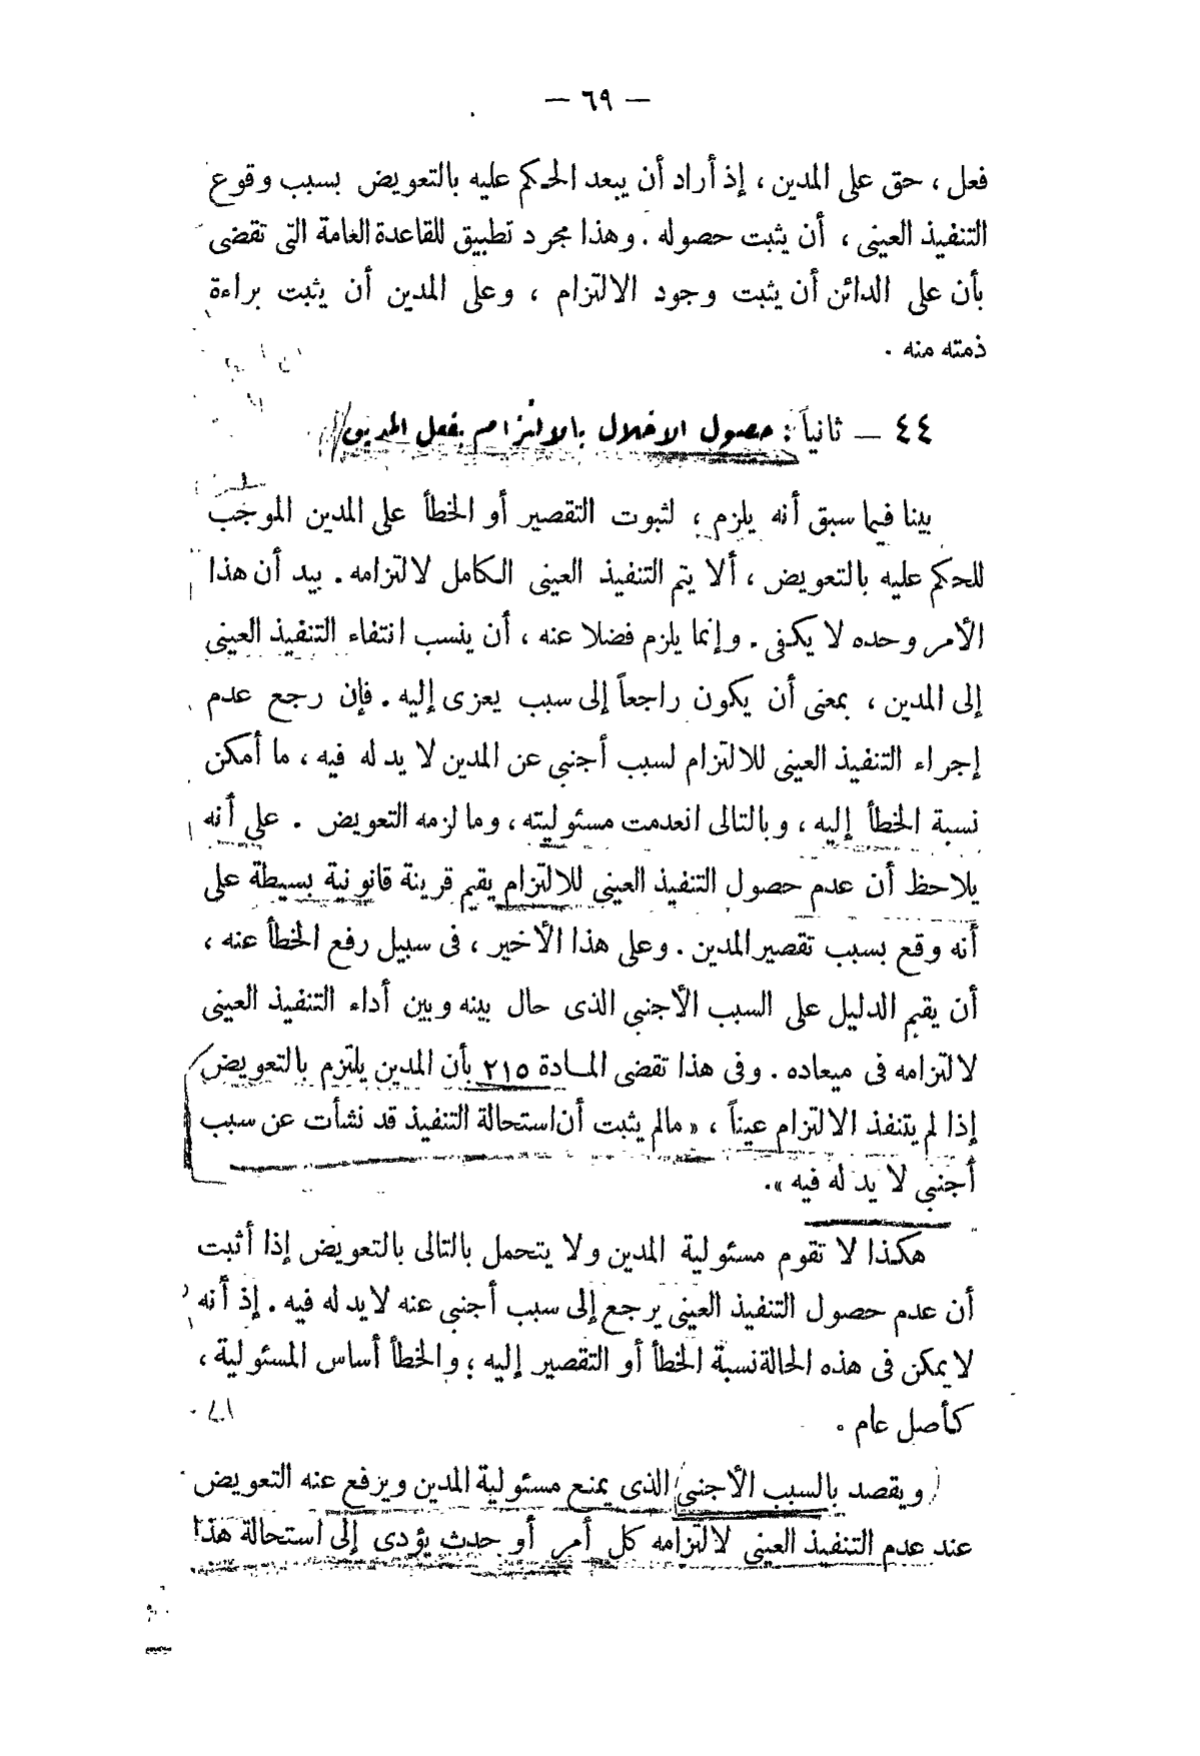 — ٦٩ —
فعل ، حق على المدين ، إذ أراد أن يبعد الحكم عليه بالتعويض بسبب وقوع
التنفيذ العينى ، أن يثبت حصوله . وهذا مجرد تطبيق للقاعدة العامة التى تقضى
بأن على الدائن أن يثبت وجود الالتزام ، وعلى المدين أن يثبت براءة
ذمته منه .
٤٤ — ثانياً : حصول الاخلال بالالتزام بفعل المدين
بينا فيما سبق أنه يلزم ، لثبوت التقصير أو الخطأ على المدين الموجب
للحكم عليه بالتعويض ، ألا يتم التنفيذ العينى الكامل لالتزامه . بيد أن هذا
الأمر وحده لا يكفى . وإنما يلزم فضلا عنه ، أن ينسب انتفاء التنفيذ العينى
إلى المدين ، بمعنى أن يكون راجعاً إلى سبب يعزى إليه . فإن رجع عدم
إجراء التنفيذ العينى للالتزام لسبب أجنبى عن المدين لا يد له فيه ، ما أمكن
نسبة الخطأ إليه ، وبالتالى انعدمت مسئوليته ، وما لزمه التعويض . على أنه
يلاحظ أن عدم حصول التنفيذ العينى للالتزام يقيم قرينة قانونية بسيطة على
أنه وقع بسبب تقصير المدين . وعلى هذا الأخير ، فى سبيل رفع الخطأ عنه ،
أن يقيم الدليل على السبب الأجنبى الذى حال بينه وبين أداء التنفيذ العينى
لالتزامه فى ميعاده . وفى هذا تقضى المادة ٢١٥ بأن المدين يلتزم بالتعويض
إذا لم يتنفذ الالتزام عيناً ، « مالم يثبت أن استحالة التنفيذ قد نشأت عن سبب
أجنبى لا يد له فيه ».
هكذا لا تقوم مسئولية المدين ولا يتحمل بالتالى بالتعويض إذا أثبت
أن عدم حصول التنفيذ العينى يرجع إلى سبب أجنبى عنه لايد له فيه . إذ أنه
لا يمكن فى هذه الحالة نسبة الخطأ أو التقصير إليه ؛ والخطأ أساس المسئولية ،
كأصل عام .
ويقصد بالسبب الأجنبى الذى يمنع مسئولية المدين ويرفع عنه التعويض
عند عدم التنفيذ العينى لالتزامه كل أمر أو حدث يؤدى إلى استحالة هذا